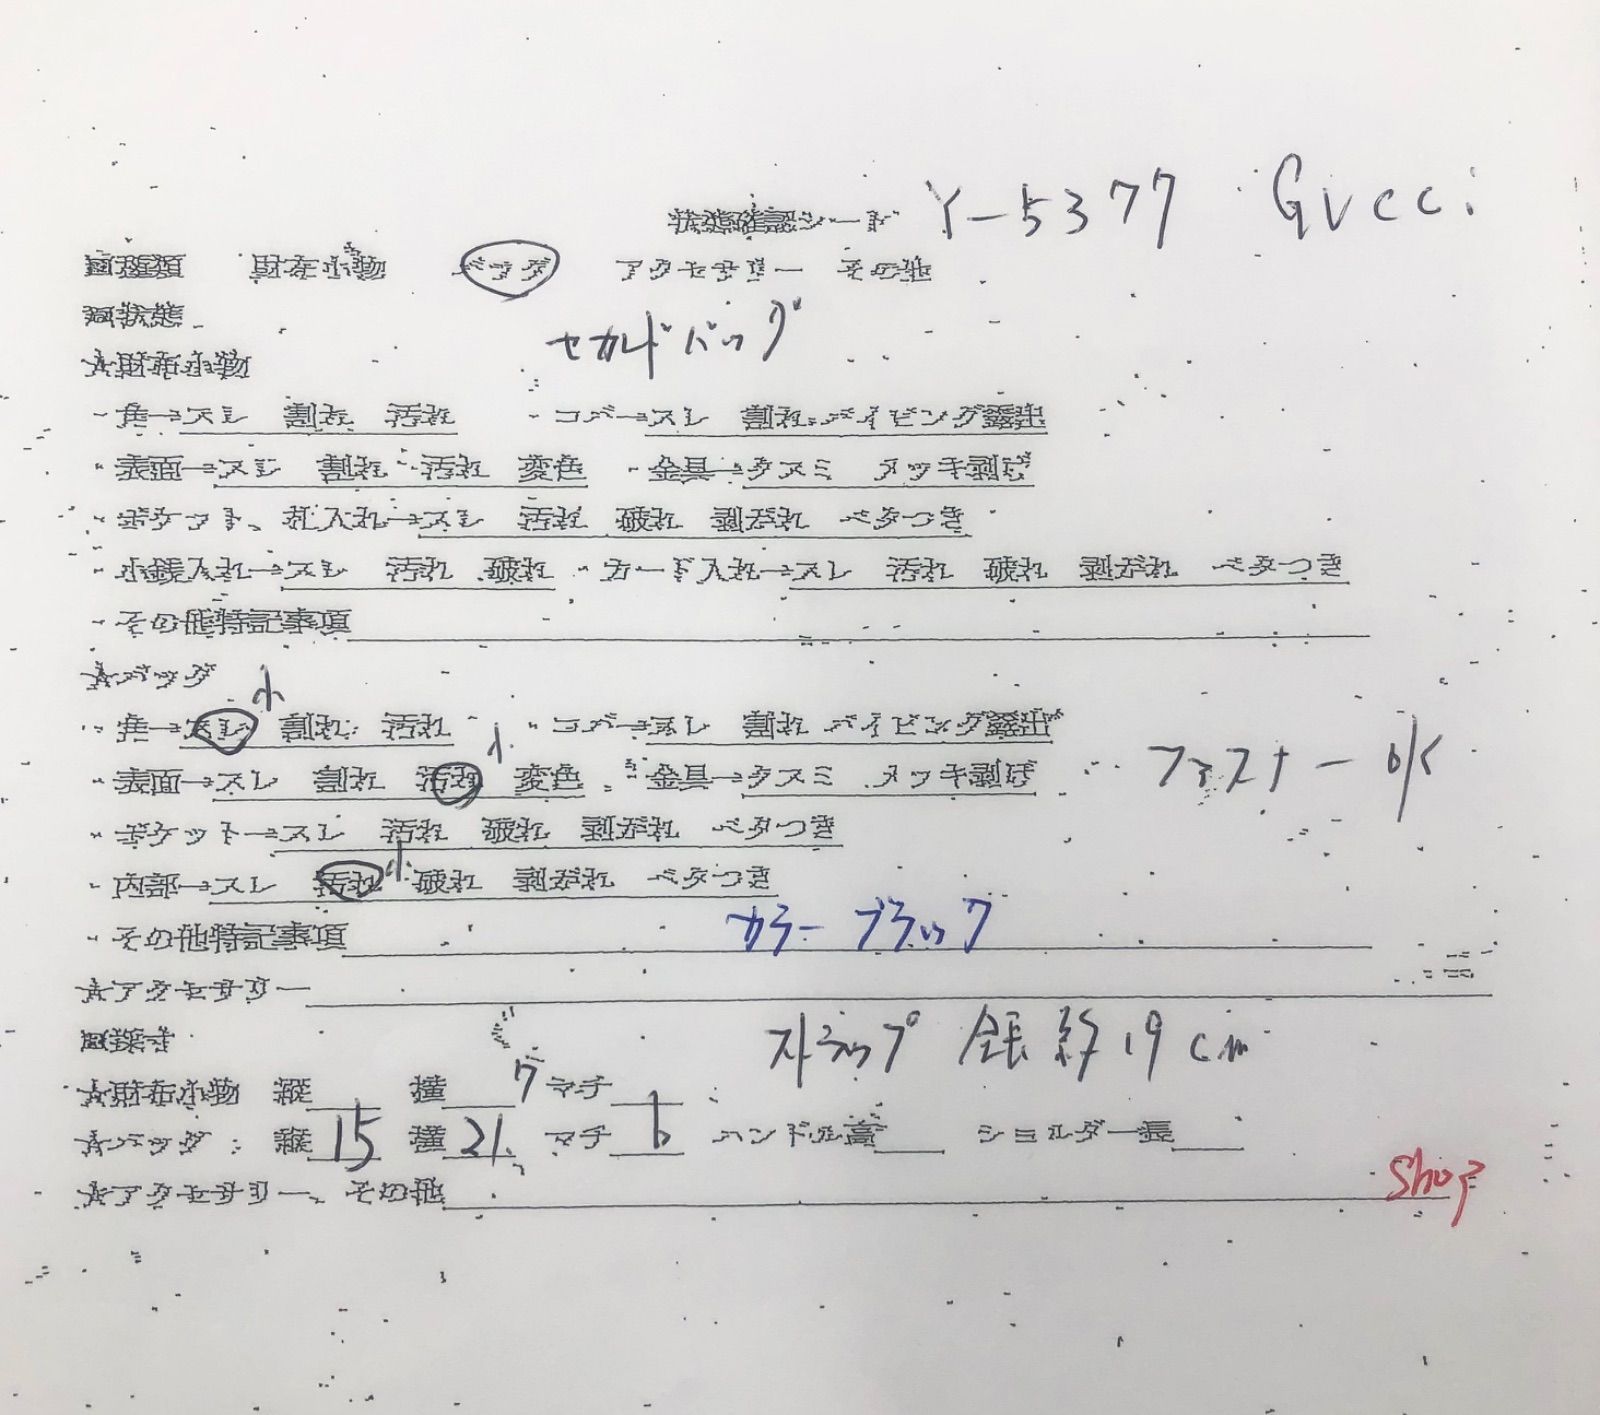 状態確認シート Y-5377 Gucci
□種類 財布小物 バッグ アクセサリー その他
□状態
セカンドバッグ
☆財布小物
・角→スレ 割れ 汚れ ・コバ→スレ 割れ パイピング露出
・表面→スレ 割れ 汚れ 変色 ・金具→クスミ メッキ剥げ
・ポケット、札入れ→スレ 汚れ 破れ 剥がれ ベタつき
・小銭入れ→スレ 汚れ 破れ ・カード入れ→スレ 汚れ 破れ 剥がれ ベタつき
・その他特記事項
☆バッグ
小
・角→スレ 割れ 汚れ ・コバ→スレ 割れ パイピング露出
小
・表面→スレ 割れ 汚れ 変色 ・金具→クスミ メッキ剥げ ファスナー OK
・ポケット→スレ 汚れ 破れ 剥がれ ベタつき
・内部→スレ 汚れ 小 破れ 剥がれ ベタつき
・その他特記事項 カラー ブラック
☆アクセサリー
□採寸
ストラップ 全長 約19cm
☆財布小物 縦 横 マチ
☆バッグ 縦 15 横 21 マチ 6 ハンドル高 ショルダー長
☆アクセサリー、その他 Shop